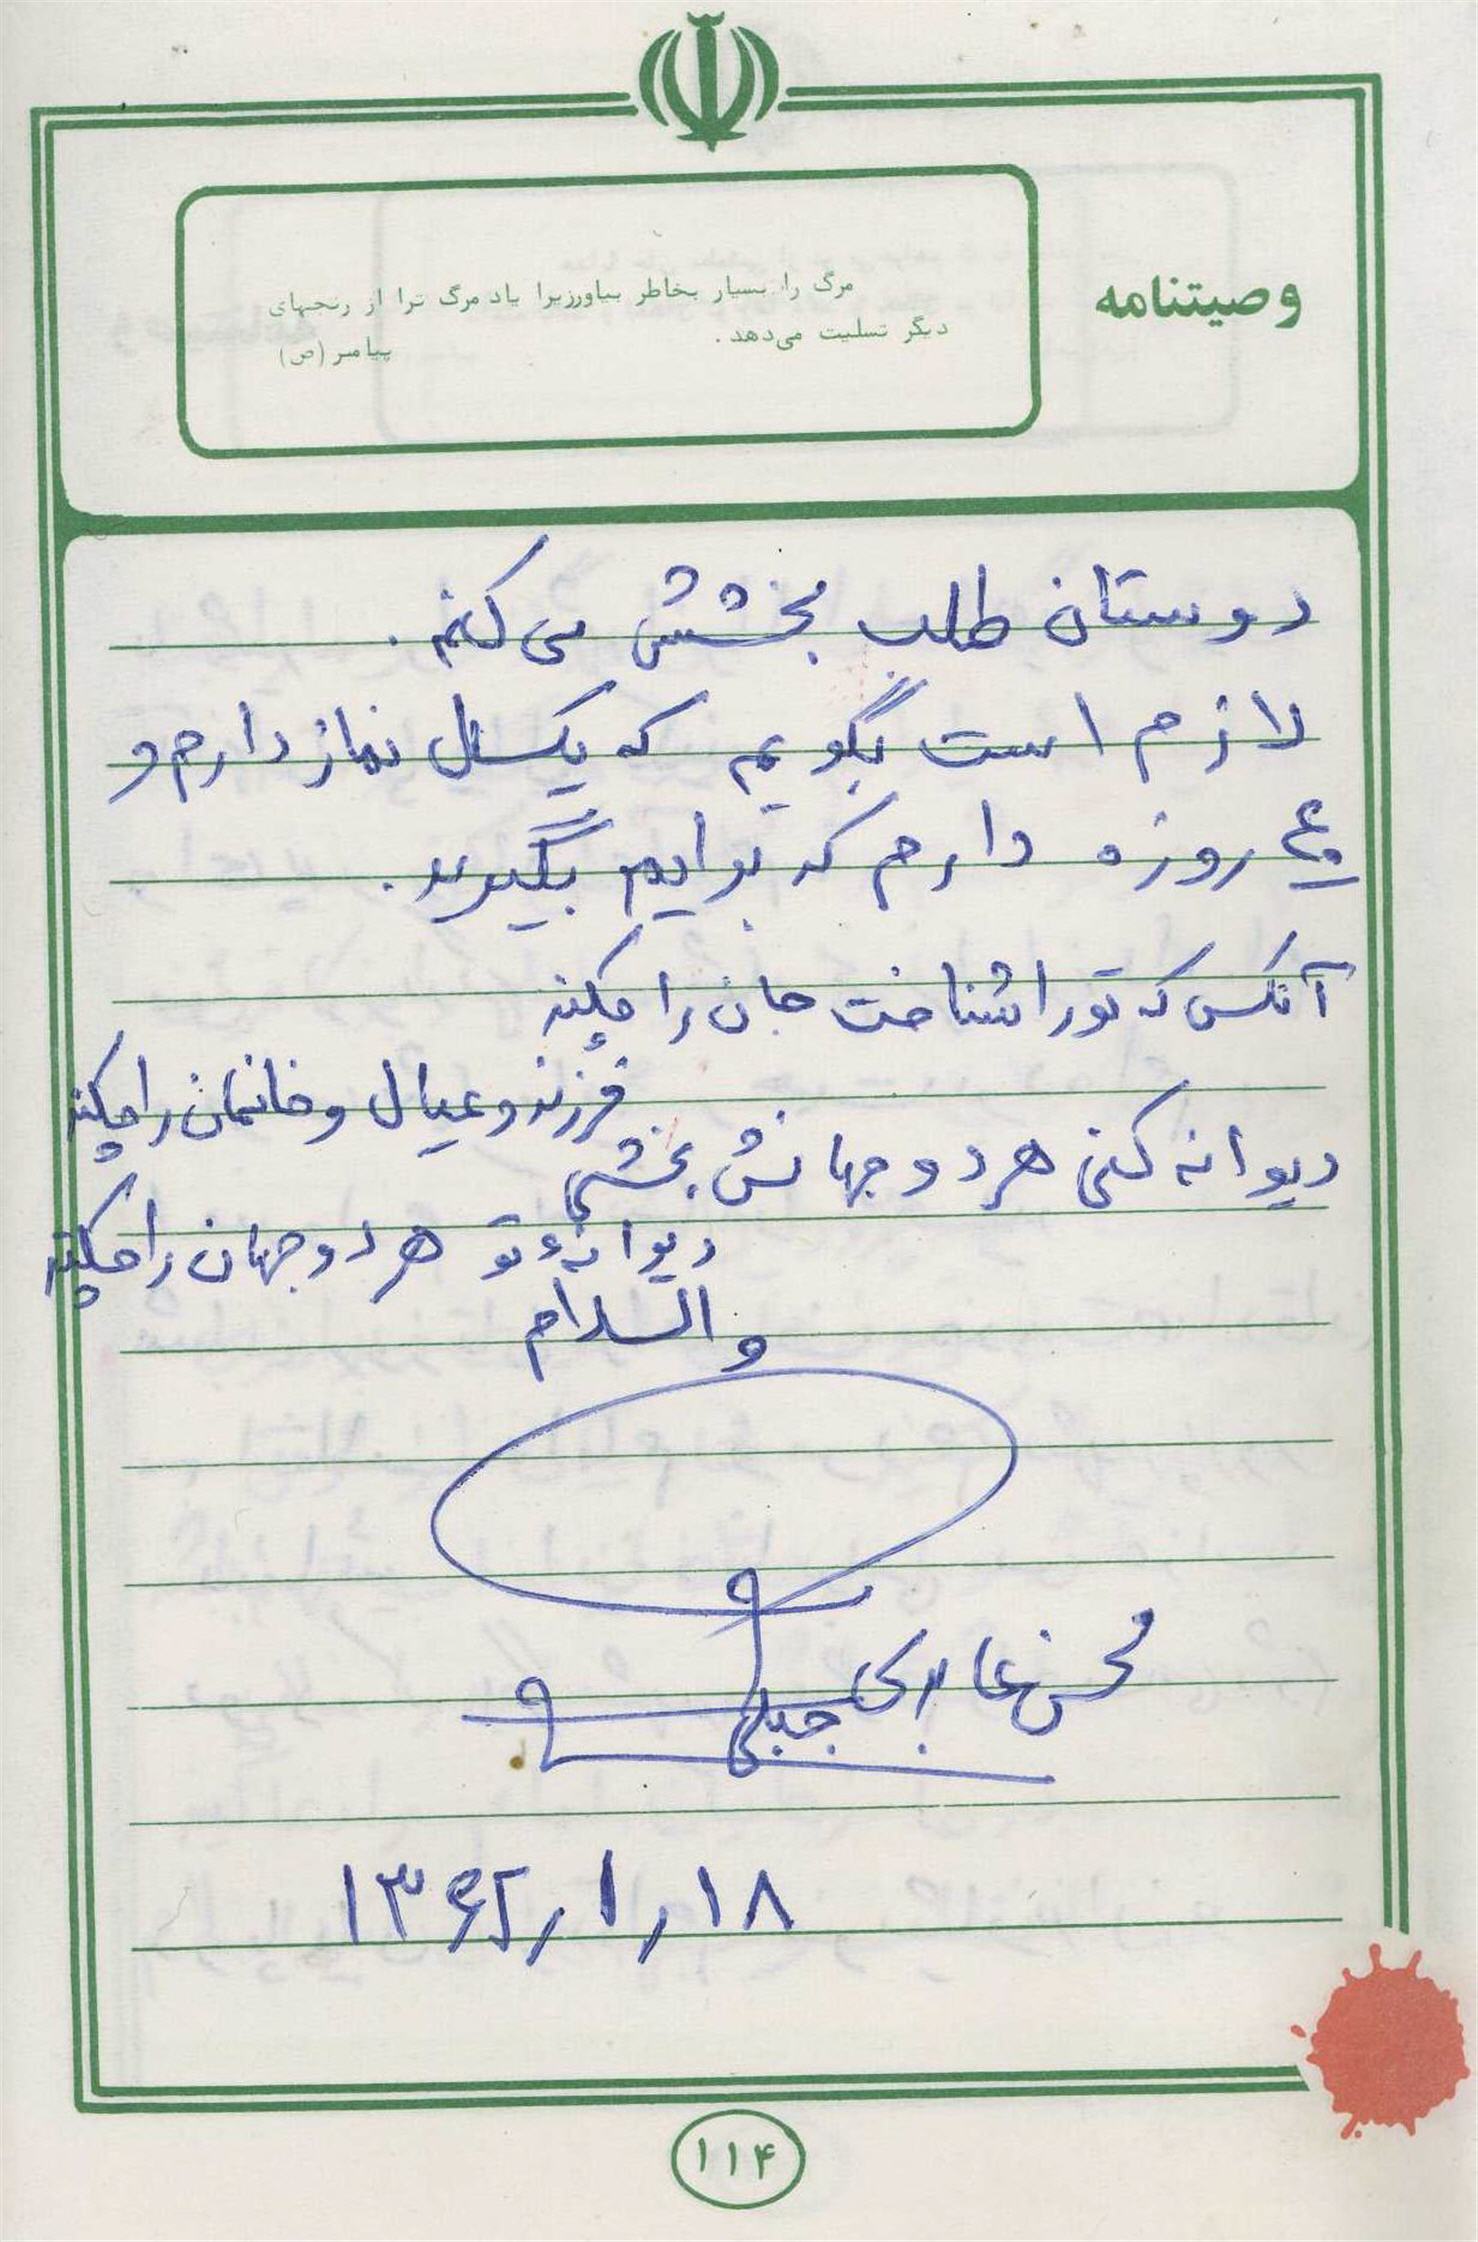 وصیتنامه
مرگ را بسیار بخاطر بیاور زیرا یاد مرگ ترا از رنجهای
دیگر تسلیت می‌دهد.
پیامبر (ص)
دوستان طلب بخشش می کنم.
لازم است بگویم که یکسال نماز دارم و
روزه دارم که برایم بگیرید.
آنکس که تو را شناخت جان را چکند
فرزند و عیال و خانمان را چکند
دیوانه کنی هر دو جهانش بخشی
دیوانهٔ تو هر دو جهان را چکند
والسلام
محسن عابدی
جبلی
۱۳۶۲٫۱٫۱۸
۱۱۴